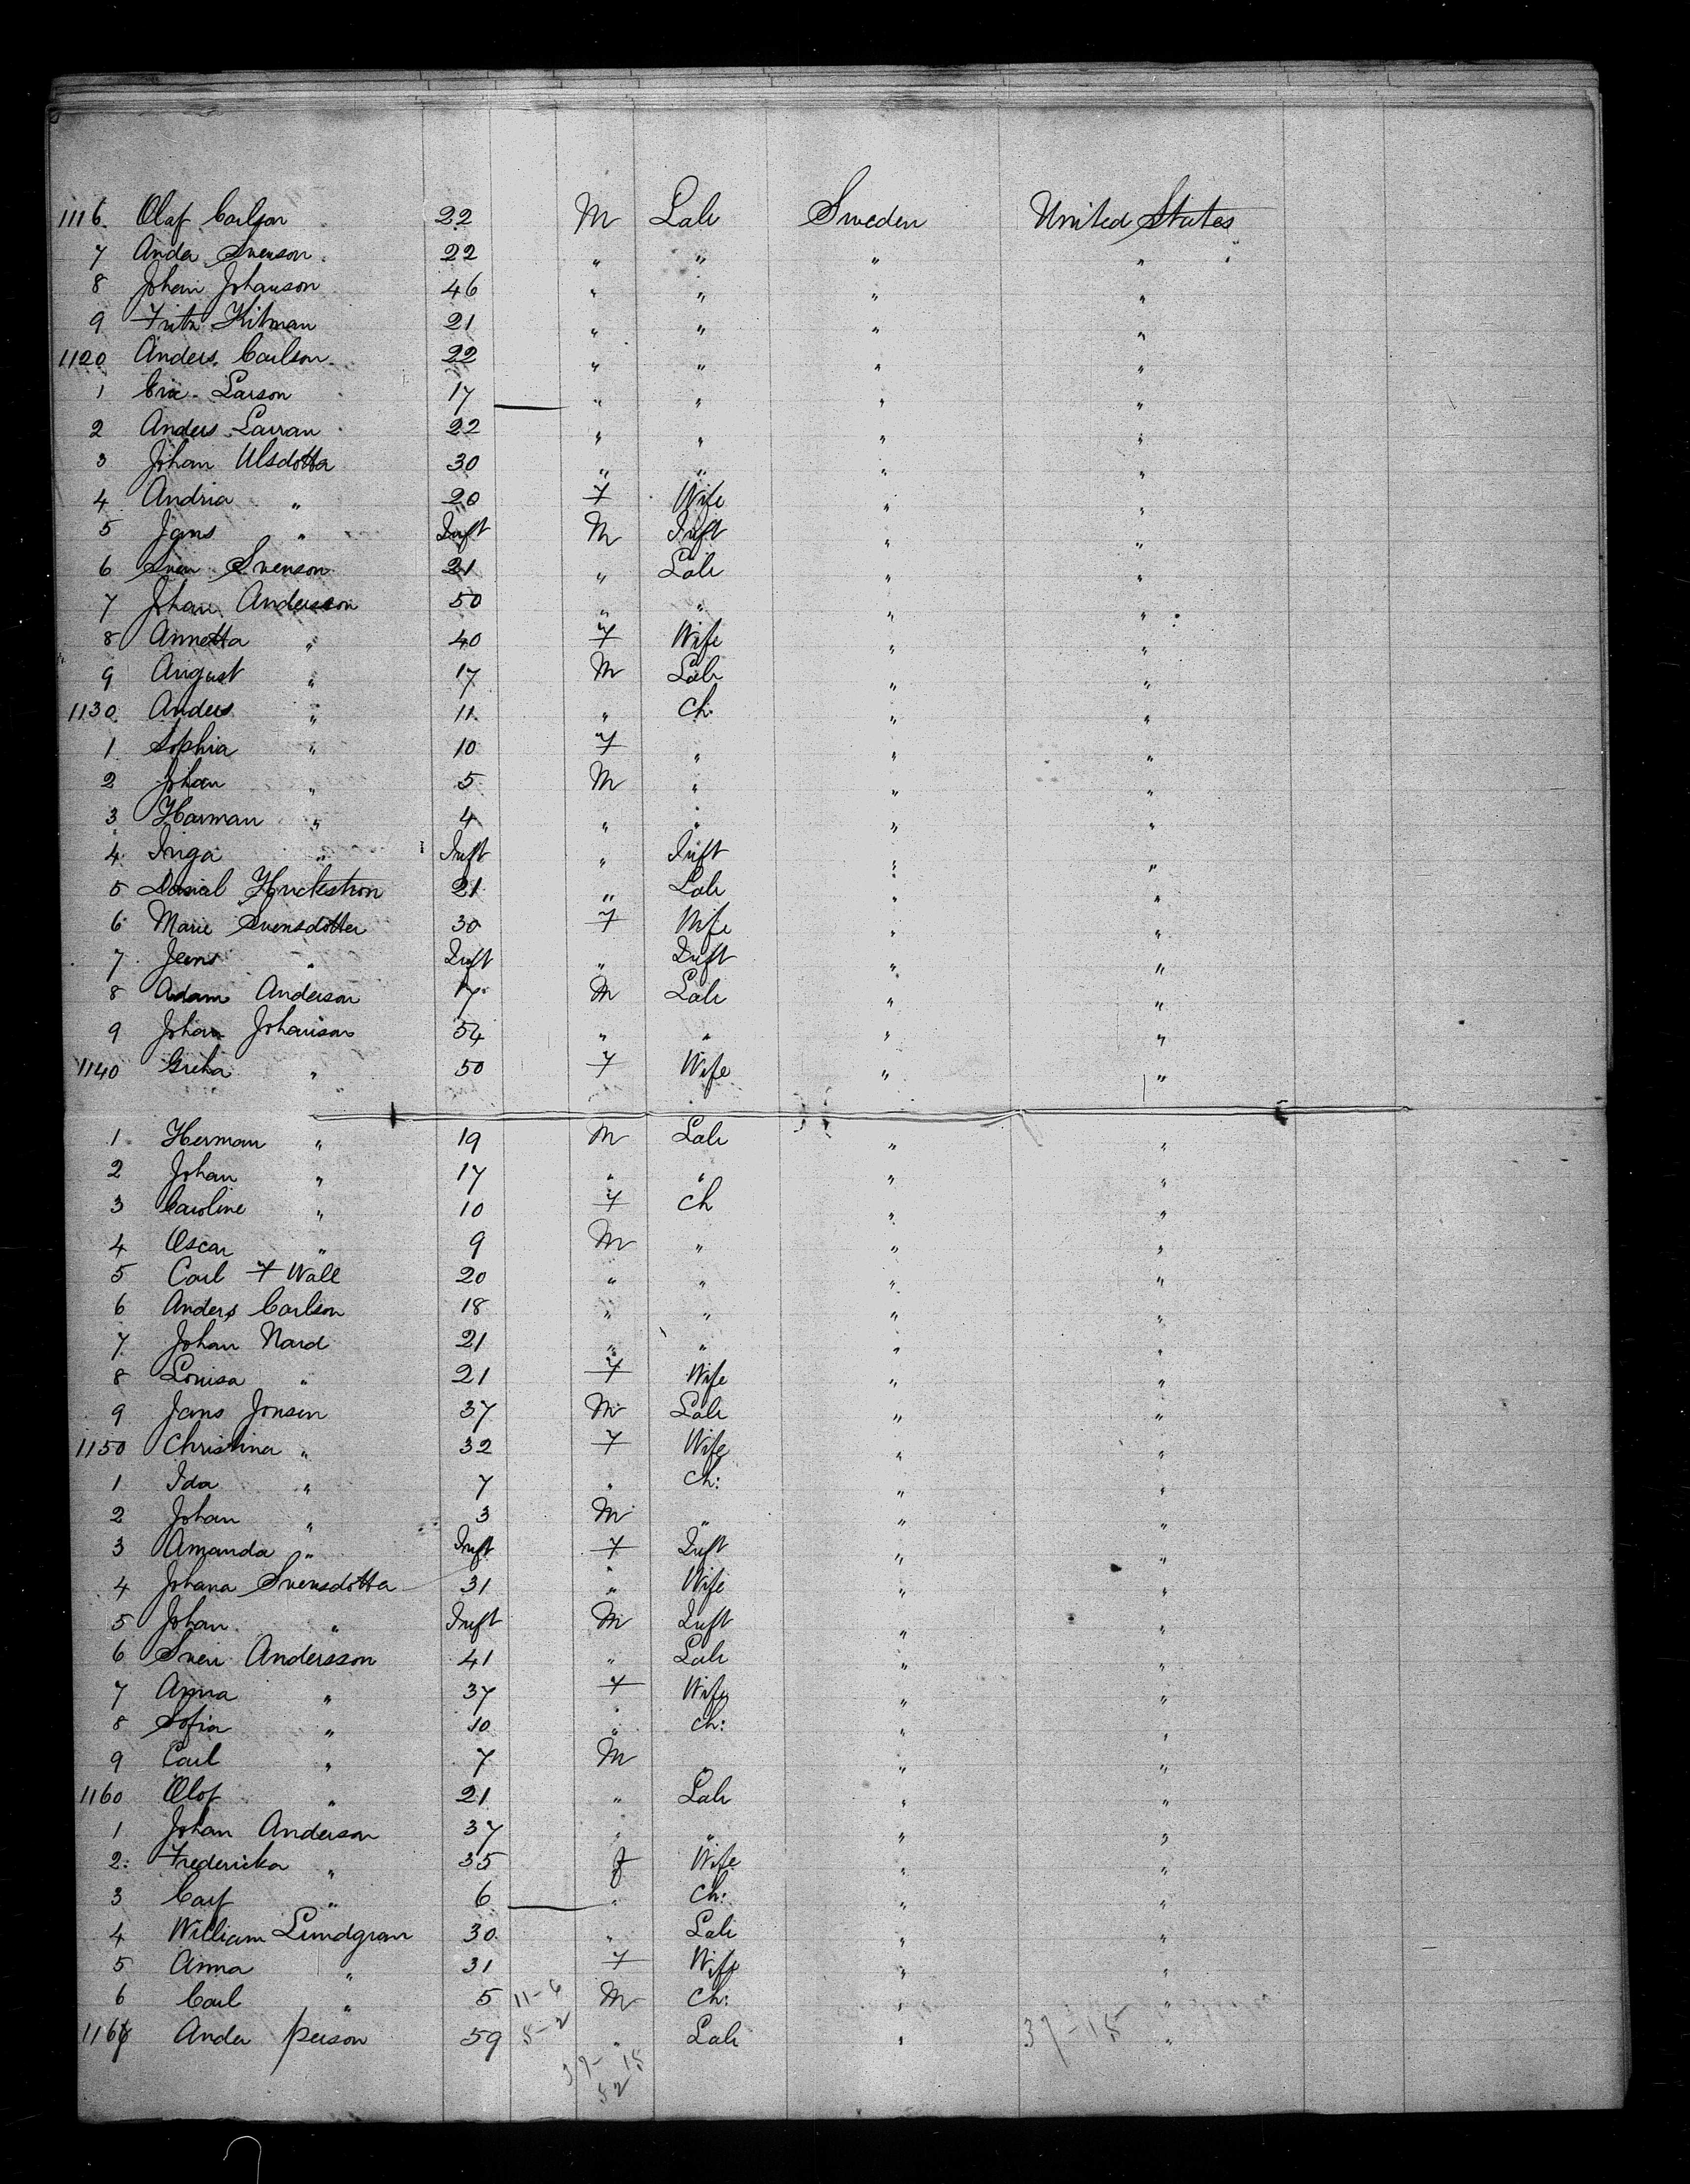 1116. Olaf Carlson 22 M Lab Sweden United States
7 Ander Svenson 22 " " " "
8 Johan Johanson 46 " " " "
9 Fritz Kitman 21 " " " "
1120 Anders Carlson 22 " " " "
1 Eric Larson 17 " " " "
2 Anders Larran 22 " " " "
3 Johan Ulsdotta 30 " " " "
4 Andria " 20 F Wife " "
5 Jans " Inft M Inft " "
6 Sven Svenson 21 " Lab " "
7 Johan Andersson 50 " " " "
8 Annetta " 40 F Wife " "
9 August " 17 M Lab " "
1130 Anders " 11 " Ch. " "
1 Sophia " 10 F " " "
2 Johan " 5 M " " "
3 Harman " 4 " " " "
4 Inga " Inft " Inft " "
5 Danial 21 " Lab " "
6 Marie Svensdotter 30 F Wife " "
7 Jens " Inft " Inft " "
8 Adam Anderson 17 M Lab " "
9 Johan Johanson 54 " " " "
1140 Greta " 50 F Wife " "
1 Herman " 19 M Lab " "
2 Johan " 17 " " " "
3 Caroline " 10 F Ch " "
4 Oscar " 9 M " " "
5 Carl F Wall 20 " " " "
6 Anders Carlson 18 " " " "
7 Johan Nard 21 " " " "
8 Louisa " 21 F Wife " "
9 Jans Jonsen 37 M Lab " "
1150 Christina " 32 F Wife " "
1 Ida " 7 " Ch: " "
2 Johan " 3 M " " "
3 Amanda " Inft F Inft " "
4 Johana Svensdotta 31 " Wife " "
5 Johan " Inft M Inft " "
6 Sven Andersson 41 " Lab " "
7 Anna " 37 F Wife " "
8 Sofia " 10 " Ch: " "
9 Carl " 7 M " " "
1160 Olof " 21 " Lab " "
1 Johan Anderson 37 " " " "
2: Fredericka " 35 f Wife " "
3 Carl " 6 " Ch: " "
4 William Lundgran 30 " Lab " "
5 Anna " 31 F Wife " "
6 Carl " 5 11-6 M Ch: " "
1167 Ander person 59 5-2 " Lab " 37-15 "
37-15
52